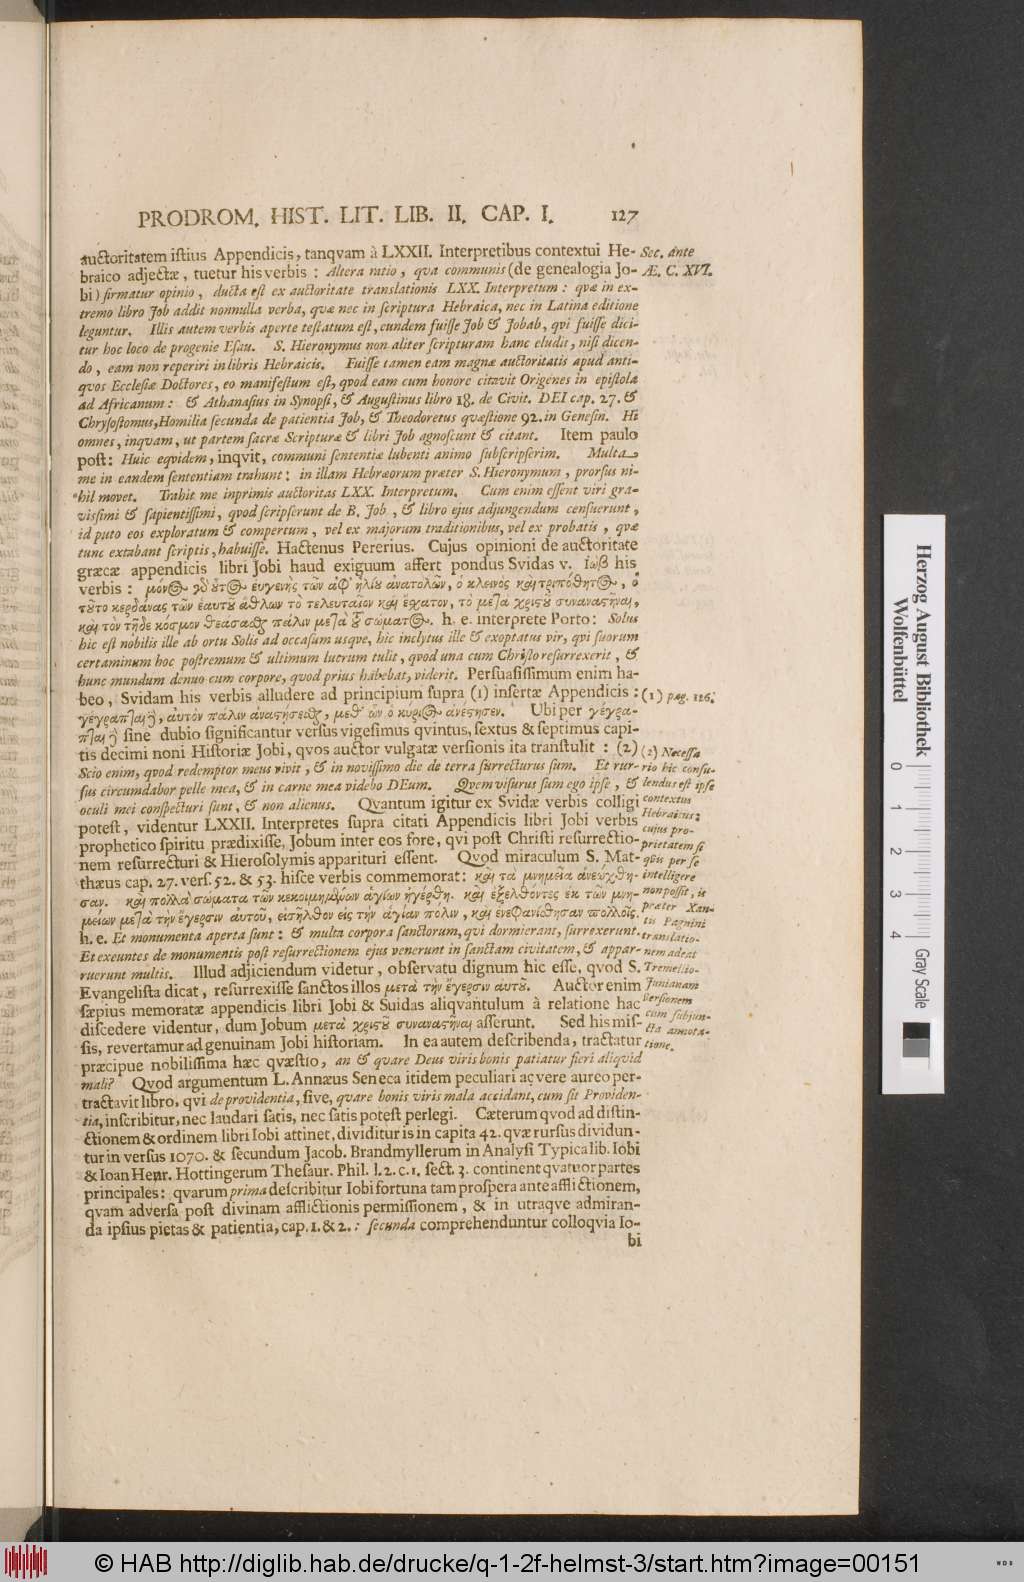 PRODROM. HIST. LIT. LIB. II. CAP. I. 127
auctoritatem istius Appendicis, tanqvam à LXXII. Interpretibus contextui He-
braico adjectæ, tuetur his verbis: Altera ratio, qva communis (de genealogia Jo-
bi) firmatur opinio, ducta est ex auctoritate translationis LXX. Interpretum: qvæ in ex-
tremo libro Job addit nonnulla verba, qvæ nec in scriptura Hebraica, nec in Latina editione
leguntur. Illis autem verbis aperte testatum est, eundem fuisse Job & Jobab, qvi fuisse dici-
tur hoc loco de progenie Esau. S. Hieronymus non aliter scripturam hanc eludit, nisi dicen-
do, eam non reperiri in libris Hebraicis. Fuisse tamen eam magnæ auctoritatis apud anti-
qvos Ecclesiæ Doctores, eo manifestum est, qvod eam cum honore citavit Origenes in epistola
ad Africanum: & Athanasius in Synopsi, & Augustinus libro 18. de Civit. DEI cap. 27. &
Chrysostomus, Homilia secunda de patientia Job, & Theodoretus qvæstione 92. in Genesin. Hi
omnes, inqvam, ut partem sacræ Scripturæ & libri Job agnoscunt & citant. Item paulo
post: Huic eqvidem, inqvit, communi sententiæ lubenti animo subscripserim. Multa
me in eandem sententiam trahunt: in illam Hebræorum præter S. Hieronymum, prorsus ni-
hil movet. Trahit me inprimis auctoritas LXX. Interpretum. Cum enim essent viri gra-
vissimi & sapientissimi, qvod scripserunt de B. Job, & libro ejus adjungendum censuerunt,
id puto eos exploratum & compertum, vel ex majorum traditionibus, vel ex probatis, qvæ
tunc extabant scriptis, habuisse. Hactenus Pererius. Cujus opinioni de auctoritate
græcæ appendicis libri Jobi haud exiguum affert pondus Svidas v. Ἰώβ his
verbis: μόνος δ' οὗτος εὐγενὴς τῶν ἀφ' ἡλίου ἀνατολῶν, ὁ κλεινὸς καὶ τριπόθητος, ὁ
τοῦτο κερδάνας τῶν ἑαυτοῦ ἄθλων τὸ τελευταῖον καὶ ἔσχατον, τὸ μετὰ χριστοῦ συναναστῆναι,
καὶ τὸν τῇδε κόσμον θεάσασθαι πάλιν μετὰ τοῦ σώματος. h. e. interprete Porto: Solus
hic est nobilis ille ab ortu Solis ad occasum usqve, hic inclytus ille & exoptatus vir, qvi suorum
certaminum hoc postremum & ultimum lucrum tulit, qvod una cum Christo resurrexerit, &
hunc mundum denuo cum corpore, qvod prius habebat, viderit. Persuasissimum enim ha-
beo, Svidam his verbis alludere ad principium supra (1) insertæ Appendicis:
γέγραπται δὲ, αὐτὸν πάλιν ἀναστήσεσθαι, μεθ' ὧν ὁ κύριος ἀνέστησεν. Ubi per γέγρα-
πται δὲ sine dubio significantur versus vigesimus qvintus, sextus & septimus capi-
tis decimi noni Historiæ Jobi, qvos auctor vulgatæ versionis ita transtulit: (2)
Scio enim, qvod redemptor meus vivit, & in novissimo die de terra surrecturus sum. Et rur-
sus circumdabor pelle mea, & in carne mea videbo DEum. Qvem visurus sum ego ipse, &
oculi mei conspecturi sunt, & non alienus. Qvantum igitur ex Svidæ verbis colligi
potest, videntur LXXII. Interpretes supra citati Appendicis libri Jobi verbis
prophetico spiritu prædixisse, Jobum inter eos fore, qvi post Christi resurrectio-
nem resurrecturi & Hierosolymis apparituri essent. Qvod miraculum S. Mat-
thæus cap. 27. vers. 52. & 53. hisce verbis commemorat: καὶ τὰ μνημεῖα ἀνεῴχθη-
σαν. καὶ πολλὰ σώματα τῶν κεκοιμημένων ἁγίων ἠγέρθη. καὶ ἐξελθόντες ἐκ τῶν μνη-
μείων μετὰ τὴν ἔγερσιν αὐτοῦ, εἰσῆλθον εἰς τὴν ἁγίαν πόλιν, καὶ ἐνεφανίσθησαν πολλοῖς.
h. e. Et monumenta aperta sunt: & multa corpora sanctorum, qvi dormierant, surrexerunt.
Et exeuntes de monumentis post resurrectionem ejus venerunt in sanctam civitatem, & appar-
ruerunt multis. Illud adjiciendum videtur, observatu dignum hic esse, qvod S.
Evangelista dicat, resurrexisse sanctos illos μετὰ τὴν ἔγερσιν αὐτοῦ. Auctor enim
sæpius memoratæ appendicis libri Jobi & Suidas aliqvantulum à relatione hac
discedere videntur, dum Jobum μετὰ χριστοῦ συναναστῆναι asserunt. Sed his mis-
sis, revertamur ad genuinam Jobi historiam. In ea autem describenda, tractatur
præcipue nobilissima hæc qvæstio, an & qvare Deus viris bonis patiatur fieri aliqvid
mali? Qvod argumentum L. Annæus Seneca itidem peculiari ac vere aureo per-
tractavit libro, qvi de providentia, sive, qvare bonis viris mala accidant, cum sit Providen-
tia, inscribitur, nec laudari satis, nec satis potest perlegi. Cæterum qvod ad distin-
ctionem & ordinem libri Iobi attinet, dividitur is in capita 42. qvæ rursus dividun-
tur in versus 1070. & secundum Jacob. Brandmyllerum in Analysi Typica lib. Iobi
& Ioan Henr. Hottingerum Thesaur. Phil. l. 2. c. 1. sect. 3. continent qvatvor partes
principales: qvarum prima describitur Iobi fortuna tam prospera ante afflictionem,
qvam adversa post divinam afflictionis permissionem, & in utraqve admiran-
da ipsius pietas & patientia, cap. 1. & 2.: secunda comprehenduntur colloqvia Io-
bi
Sec. ante
Æ. C. XVI.
(1) pag. 126.
(2) Necessa
rio hic consu-
lendus est ipse
contextus
Hebraicus:
cujus pro-
prietatem si
qvis per se
intelligere
non possit, is
præter Xan-
tis Pagnini
translatio-
nem adeat
Tremellio-
Junianam
versionem
cum subjun-
cta annota-
tione.
Herzog August Bibliothek
Wolfenbüttel
0 1 2 3 4
Gray Scale
© HAB http://diglib.hab.de/drucke/q-1-2f-helmst-3/start.htm?image=00151